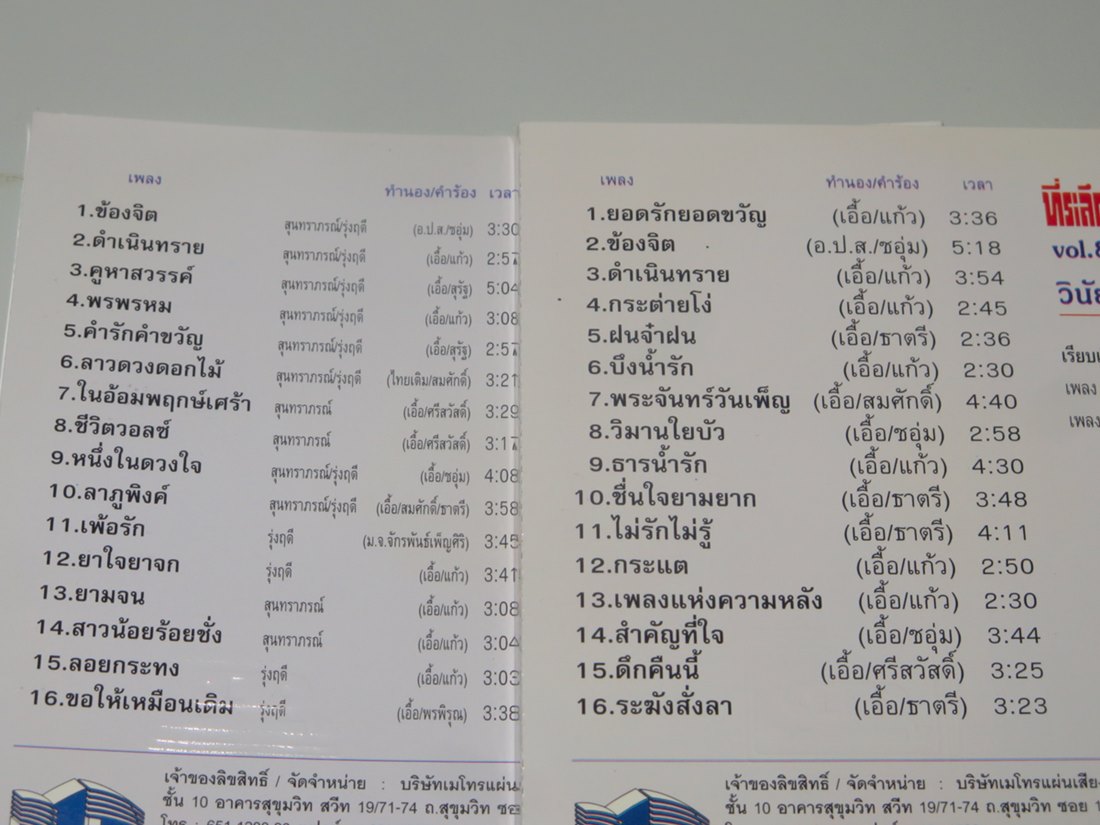 เพลง ทำนอง/คำร้อง เวลา
1.ข้องจิต สุนทราภรณ์/รุ่งฤดี (อ.ป.ส./ชอุ่ม) 3:30
2.ดำเนินทราย สุนทราภรณ์/รุ่งฤดี (เอื้อ/แก้ว) 2:57
3.คูหาสวรรค์ สุนทราภรณ์/รุ่งฤดี (เอื้อ/สุรัฐ) 5:04
4.พรพรหม สุนทราภรณ์/รุ่งฤดี (เอื้อ/แก้ว) 3:08
5.คำรักคำขวัญ สุนทราภรณ์/รุ่งฤดี (เอื้อ/สุรัฐ) 2:57
6.ลาวดวงดอกไม้ สุนทราภรณ์/รุ่งฤดี (ไทยเดิม/สมศักดิ์) 3:21
7.ในอ้อมพฤกษ์เศร้า สุนทราภรณ์ (เอื้อ/ศรีสวัสดิ์) 3:29
8.ชีวิตวอลซ์ สุนทราภรณ์ (เอื้อ/ศรีสวัสดิ์) 3:17
9.หนึ่งในดวงใจ สุนทราภรณ์/รุ่งฤดี (เอื้อ/ชอุ่ม) 4:08
10.ลาภูพิงค์ สุนทราภรณ์/รุ่งฤดี (เอื้อ/สมศักดิ์/ธาตรี) 3:58
11.เพ้อรัก รุ่งฤดี (ม.จ.จักรพันธ์เพ็ญศิริ) 3:45
12.ยาใจยาจก รุ่งฤดี (เอื้อ/แก้ว) 3:41
13.ยามจน สุนทราภรณ์ (เอื้อ/แก้ว) 3:08
14.สาวน้อยร้อยชั่ง สุนทราภรณ์ (เอื้อ/แก้ว) 3:04
15.ลอยกระทง รุ่งฤดี (เอื้อ/แก้ว) 3:03
16.ขอให้เหมือนเดิม รุ่งฤดี (เอื้อ/พรพิรุณ) 3:38
เจ้าของลิขสิทธิ์ / จัดจำหน่าย : บริษัทเมโทรแผ่น
ชั้น 10 อาคารสุขุมวิท สวีท 19/71-74 ถ.สุขุมวิท ซอ
เพลง ทำนอง/คำร้อง เวลา
1.ยอดรักยอดขวัญ (เอื้อ/แก้ว) 3:36
2.ข้องจิต (อ.ป.ส./ชอุ่ม) 5:18
3.ดำเนินทราย (เอื้อ/แก้ว) 3:54
4.กระต่ายโง่ (เอื้อ/แก้ว) 2:45
5.ฝนจ๋าฝน (เอื้อ/ธาตรี) 2:36
6.บึงน้ำรัก (เอื้อ/แก้ว) 2:30
7.พระจันทร์วันเพ็ญ (เอื้อ/สมศักดิ์) 4:40
8.วิมานใยบัว (เอื้อ/ชอุ่ม) 2:58
9.ธารน้ำรัก (เอื้อ/แก้ว) 4:30
10.ชื่นใจยามยาก (เอื้อ/ธาตรี) 3:48
11.ไม่รักไม่รู้ (เอื้อ/ธาตรี) 4:11
12.กระแต (เอื้อ/แก้ว) 2:50
13.เพลงแห่งความหลัง (เอื้อ/แก้ว) 2:30
14.สำคัญที่ใจ (เอื้อ/ชอุ่ม) 3:44
15.ดึกคืนนี้ (เอื้อ/ศรีสวัสดิ์) 3:25
16.ระฆังสั่งลา (เอื้อ/ธาตรี) 3:23
เจ้าของลิขสิทธิ์ / จัดจำหน่าย : บริษัทเมโทรแผ่นเสีย
ชั้น 10 อาคารสุขุมวิท สวีท 19/71-74 ถ.สุขุมวิท ซอย 1
ที่ระลึก
vol.8
วินัย
เรียบเ
เพลง
เพลง